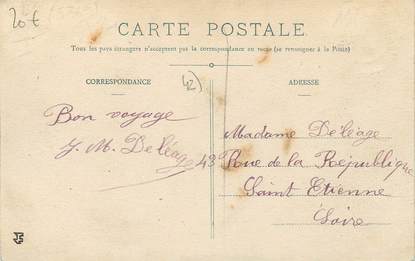 20€
CARTE POSTALE
Tous les pays étrangers n'acceptent pas la correspondance au recto (se renseigner à la Poste)
CORRESPONDANCE
42)
ADRESSE
Bon voyage
J. M. Deléage
Madame Deléage
43 Rue de la République
Saint Etienne
Loire